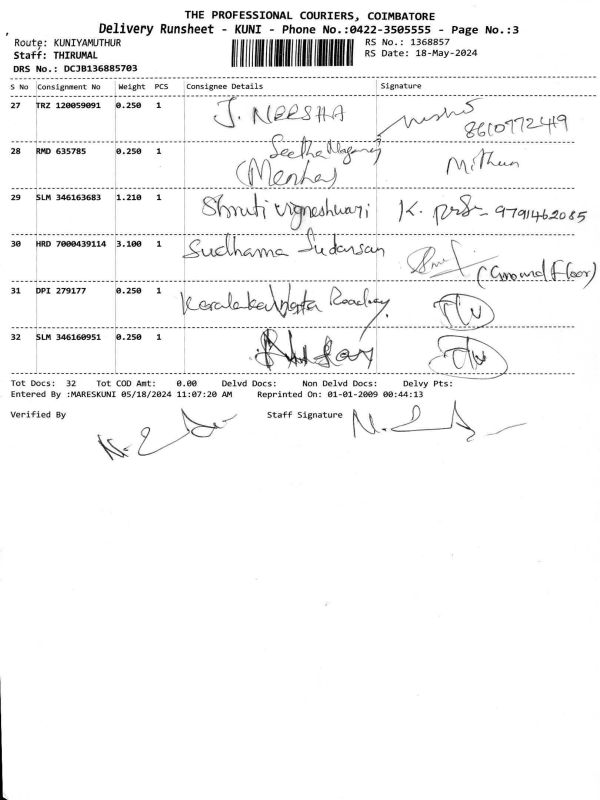 THE PROFESSIONAL COURIERS, COIMBATORE
Delivery Runsheet - KUNI - Phone No.:0422-3505555 - Page No.:3
Route: KUNIYAMUTHUR RS No.: 1368857
Staff: THIRUMAL RS Date: 18-May-2024
DRS No.: DCJB136885703
S No Consignment No Weight PCS Consignee Details Signature
27 TRZ 120059091 0.250 1 J. NEESHA
8610772419
28 RMD 635785 0.250 1 Seetha
Mithun
29 SLM 346163683 1.210 1 Shruti vigneshwari K. 9791462085
30 HRD 7000439114 3.100 1 Sudhama Sudarsan
(Ground Floor)
31 DPI 279177 0.250 1
32 SLM 346160951 0.250 1
Tot Docs: 32 Tot COD Amt: 0.00 Delvd Docs: Non Delvd Docs: Delvy Pts:
Entered By :MARESKUNI 05/18/2024 11:07:20 AM Reprinted On: 01-01-2009 00:44:13
Verified By Staff Signature